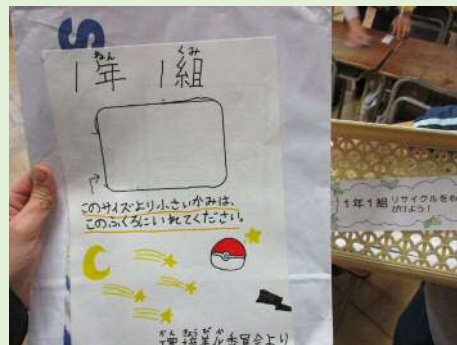 S
ねん くみ
1年 1組
このサイズより小さいかみは、
このふくろにいれてください。
かんきょうびか
環境美化委員会より
1年1組
リサイクルを
がけよう!